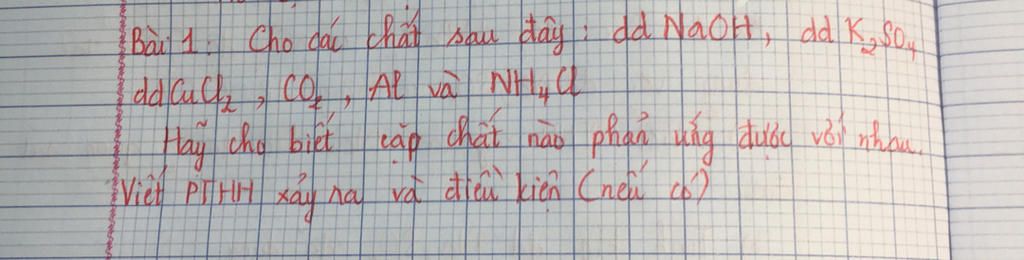 Bài 1: Cho các chất sau đây: dd NaOH, dd K₂SO₄
ddCuCl₂, CO₂, Al và NH₄Cl
Hãy cho biết cặp chất nào phản ứng được với nhau.
Viết PTHH xảy ra và điều kiện (nếu có)